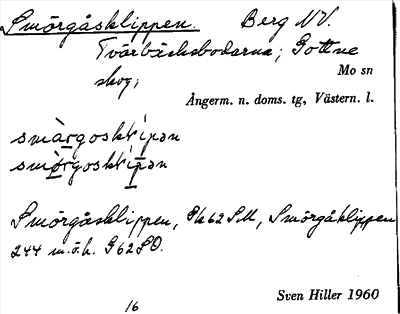 Smörgåsklippen. Berg NV.
Tvärbäcksbodarna; Gottne
skog;
Mo sn
Ångerm. n. doms. tg, Västern. l.
smàrgosklipən
smòrgosklipən
Smörgåsklippen, Sk62SM, Smörgåklippen
244 m.ö.h. G62SO.
Sven Hiller 1960
16